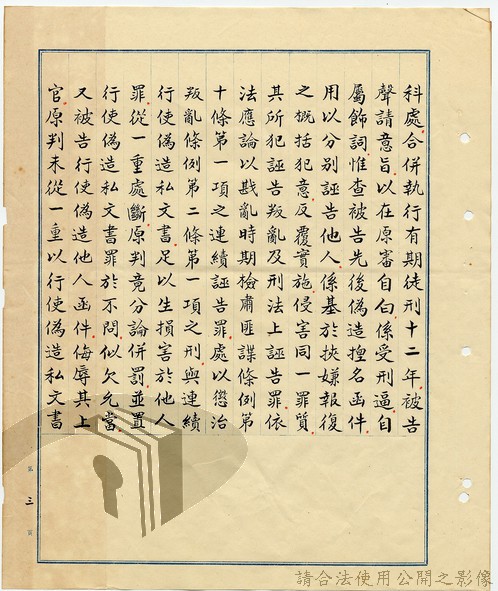 科處合併執行有期徒刑十二年被告
聲請意旨以在原審自白係受刑逼自
屬飾詞惟查被告先後偽造揑名函件
用以分別誣告他人係基於挾嫌報復
之概括犯意反覆實施侵害同一罪質
其所犯誣告叛亂及刑法上誣告罪依
法應論以戡亂時期檢肅匪諜條例第
十條第一項之連續誣告罪處以懲治
叛亂條例第二條第一項之刑與連續
行使偽造私文書足以生損害於他人
罪從一重處斷原判竟分論併罰並置
行使偽造私文書罪於不問似欠允當
又被告行使偽造他人函件侮辱其上
官原判未從一重以行使偽造私文書
第三頁
請合法使用公開之影像